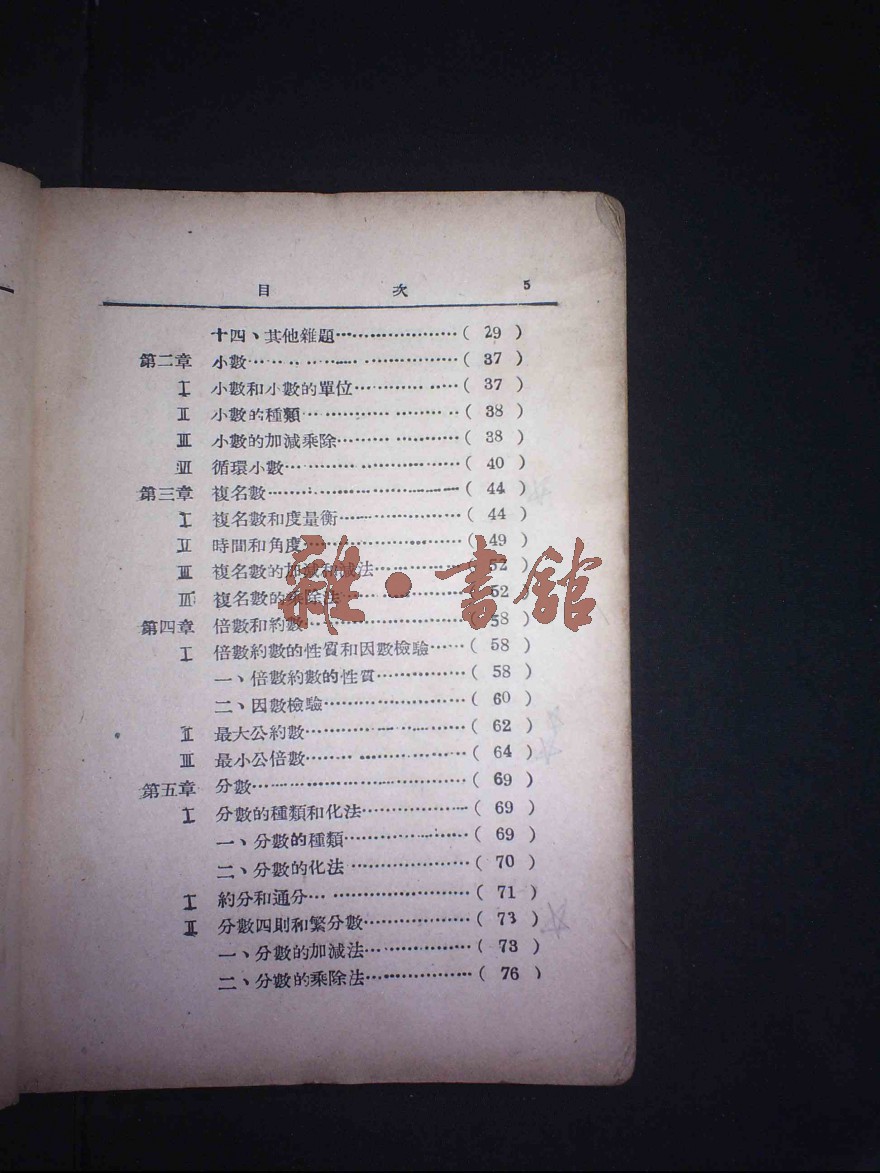 目 次 5
十四、其他雜題………………( 29 )
第二章 小數………………( 37 )
I 小數和小數的單位………………( 37 )
II 小數的種類………………( 38 )
III 小數的加減乘除………………( 38 )
IV 循環小數………………( 40 )
第三章 複名數………………( 44 )
I 複名數和度量衡………………( 44 )
II 時間和角度………………( 49 )
III 複名數的加減和減法………………( 52 )
IIII 複名數的乘除法………………( 52 )
第四章 倍數和約數………………( 58 )
I 倍數約數的性質和因數檢驗……( 58 )
一、倍數約數的性質………………( 58 )
二、因數檢驗………………( 60 )
II 最大公約數………………( 62 )
III 最小公倍數………………( 64 )
第五章 分數………………( 69 )
I 分數的種類和化法………………( 69 )
一、分數的種類………………( 69 )
二、分數的化法………………( 70 )
I 約分和通分………………( 71 )
II 分數四則和繁分數………………( 73 )
一、分數的加減法………………( 73 )
二、分數的乘除法………………( 76 )
雜·書館